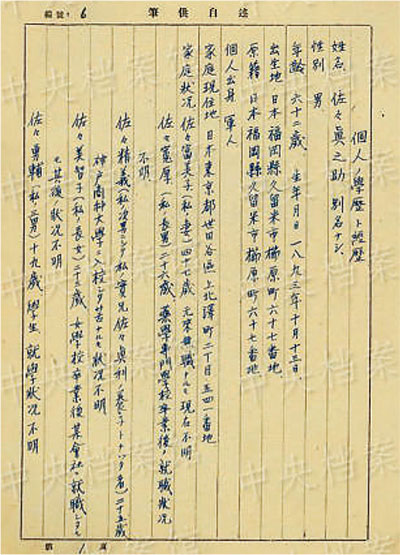 述自供筆
編號: 6
個人ノ學歷ト經歷
姓名 佐々真之助 別名ナシ
性別 男
年齢 六十二歳 生年月日 一八九三年十月十三日
出生地 日本福岡縣久留米市櫛原町六十七番地
原籍 日本福岡縣久留米市櫛原町六十七番地
個人出身 軍人
家庭現住地 日本東京都世田谷區上北澤町二丁目五四一番地
家庭狀況 佐々富美子(私ノ妻)四十七歳 元來無職ナルモ現在不明
佐々寛厚(私ノ長男)二十六歳 藥學專門學校卒業後ノ就職狀況
不明
佐々精義(私ノ次男ニシテ私ノ實兄佐々真利ノ養子トナリタル者)二十五歳
神戸商科大學ニ入校シタル後ノ狀況不明
佐々美智子(私ノ長女)二十三歳 女學校卒業後某會社ニ就職シタル
モ其後ノ狀況不明
佐々勇輔(私ノ三男)十九歳 學生 就學狀況不明
第 1 頁
中央档案